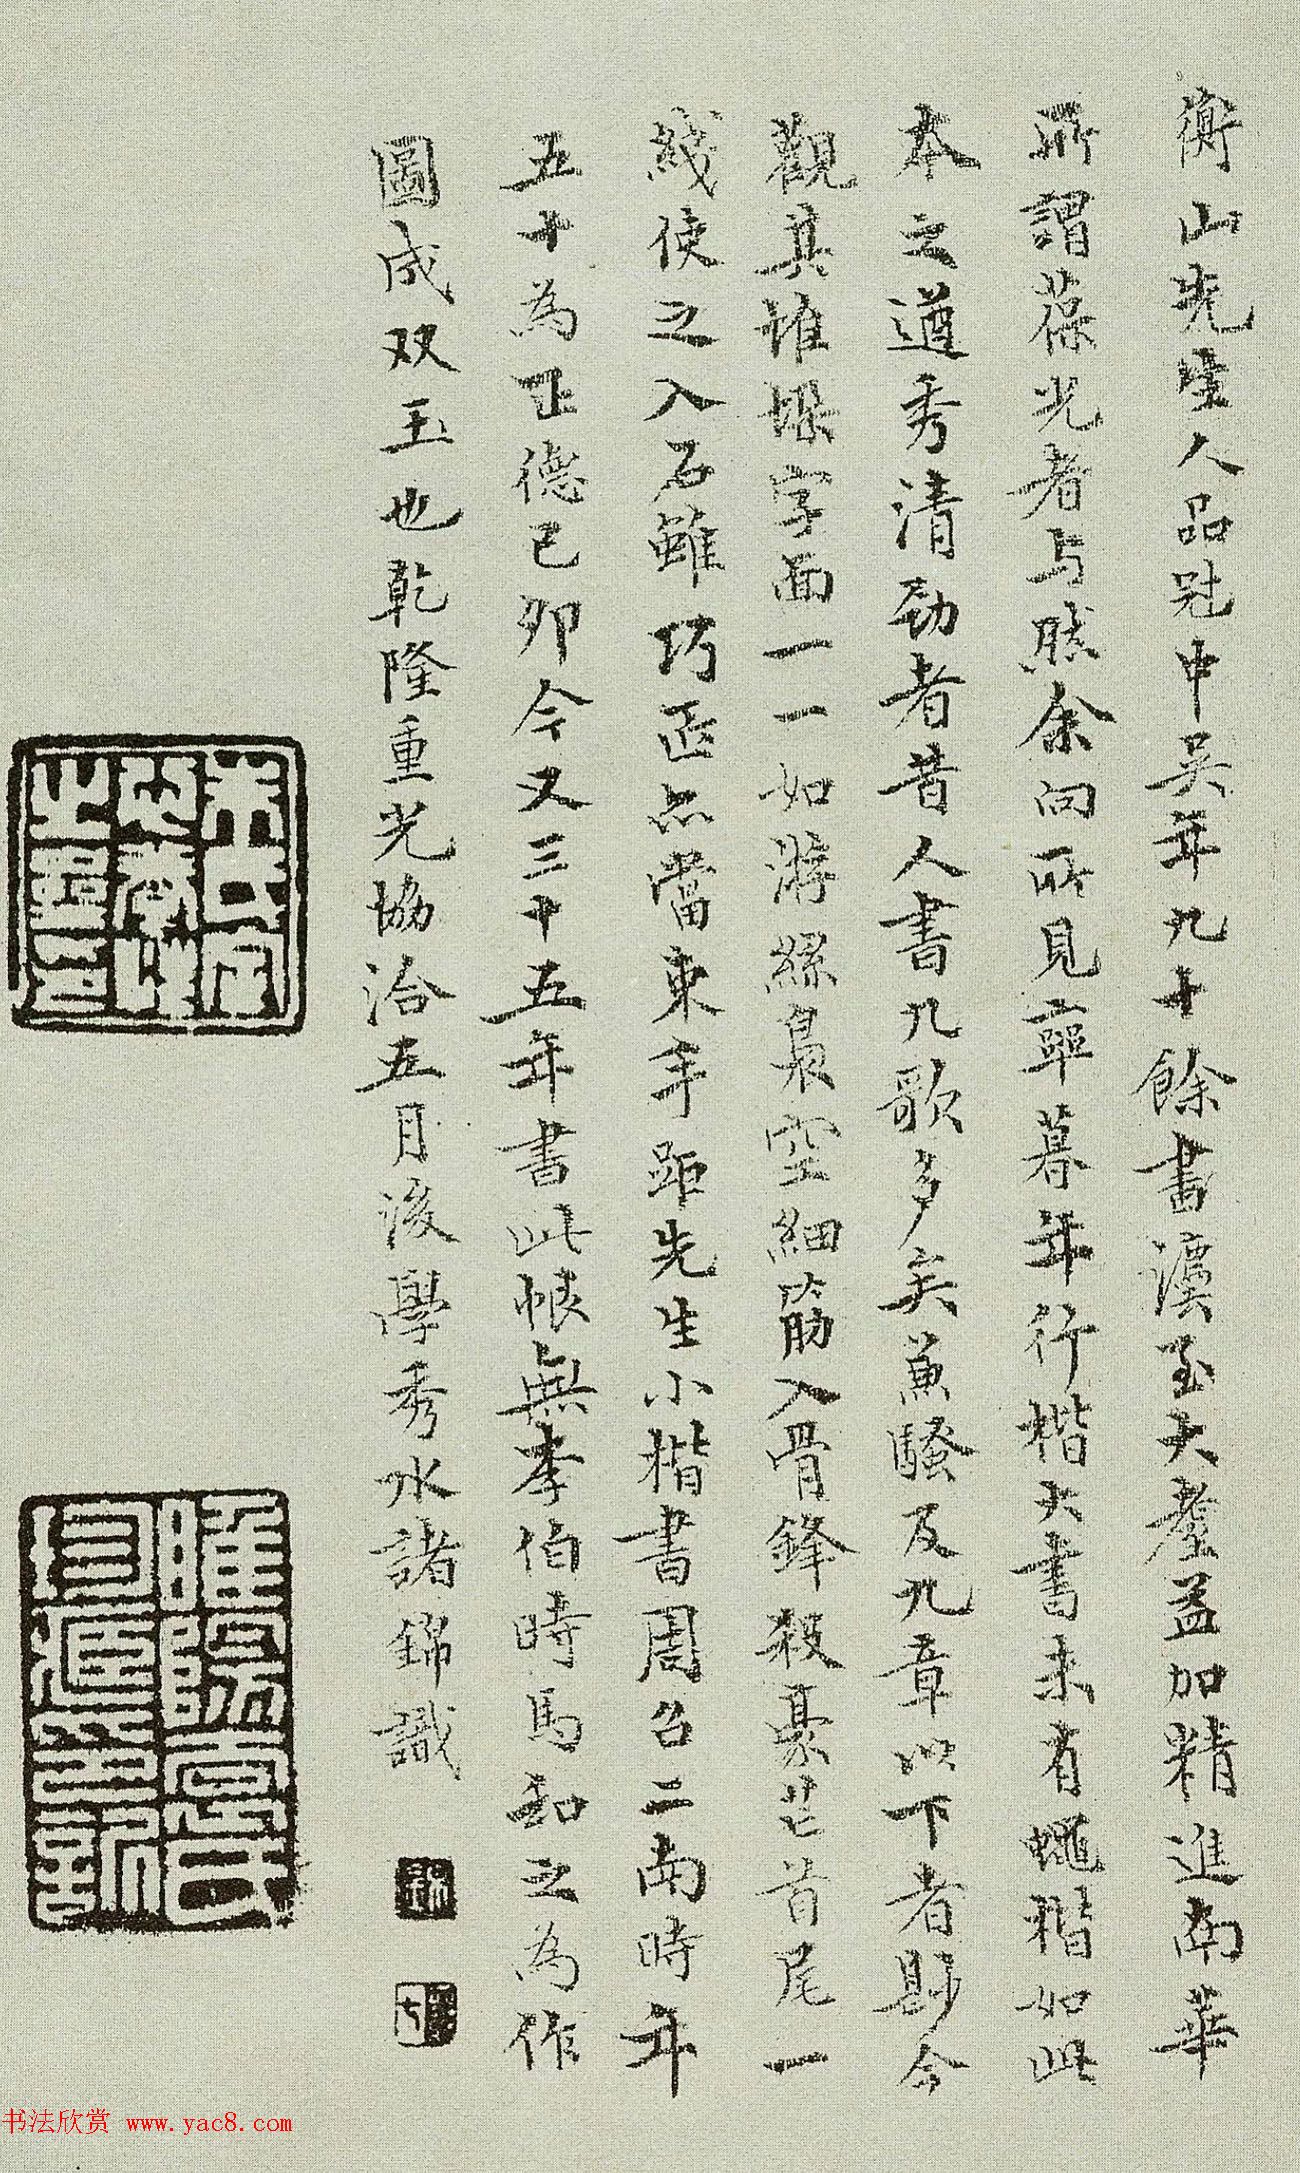 衡山先生人品冠中吴年九十餘書演至大耋益加精進南華
所謂葆光者与然余向所見率暮年行楷大書未有蠅楷如此
本之遒秀清勁者昔人書九歌多矣兼騷及九章以下者尟今
觀其堆垛字面一一如游絲裊空細筋入骨鋒殺豪芒首尾一
綫使之入石雖巧匠亦當束手距先生小楷書周召二南時年
五十為正德己卯今又三十五年書此帳無李伯時馬和之為作
圖成双玉也乾隆重光協洽五月後學秀水諸錦識
书法欣赏 www.yac8.com